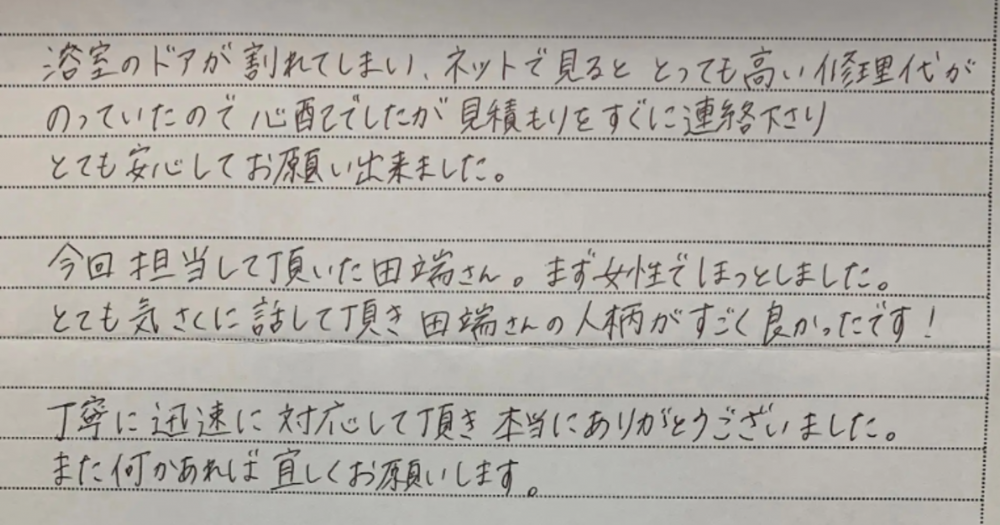 浴室のドアが割れてしまい、ネットで見ると とっても高い修理代が
のっていたので心配でしたが見積もりをすぐに連絡下さり
とても安心してお願い出来ました。
今回担当して頂いた田端さん。まず女性でほっとしました。
とても気さくに話して頂き田端さんの人柄がすごく良かったです!
丁寧に迅速に対応して頂き本当にありがとうございました。
また何かあれば宜しくお願いします。